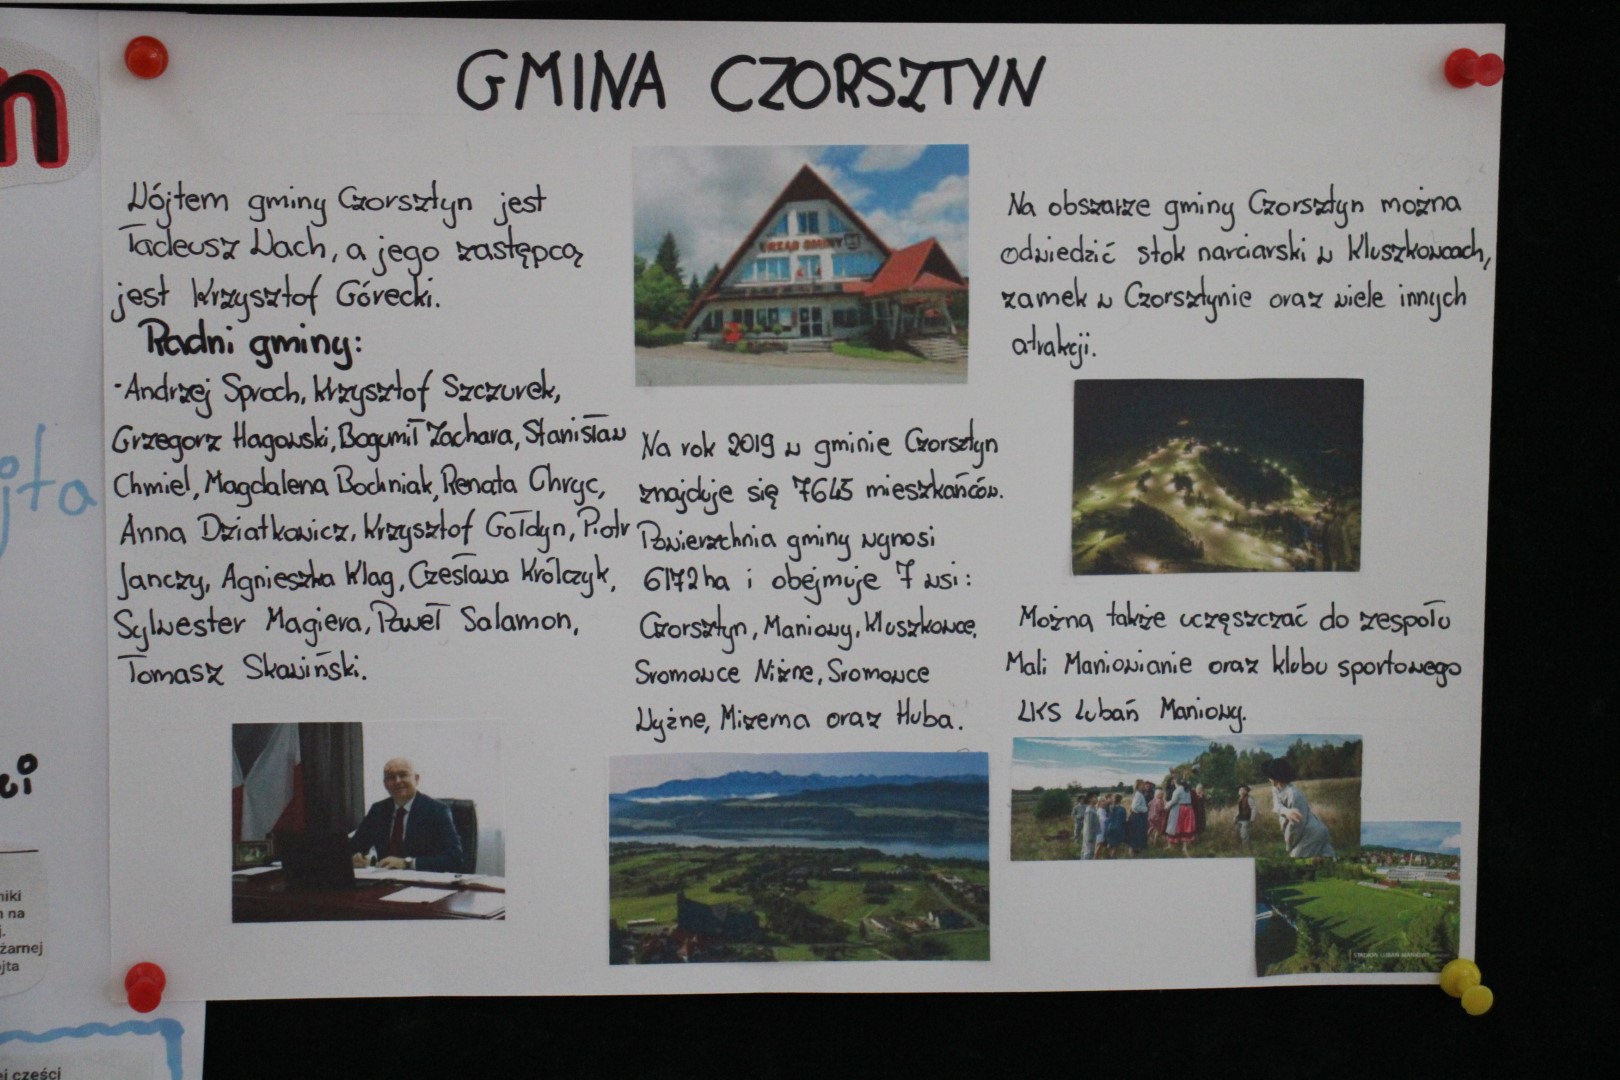 GMINA CZORSZTYN
Wójtem gminy Czorsztyn jest
Tadeusz Wach, a jego zastępcą
jest Krzysztof Górecki.
Radni gminy:
-Andrzej Sproch, Krzysztof Szczurek,
Grzegorz Hagowski, Bogumił Zachara, Stanisław
Chmiel, Magdalena Bochniak, Renata Chryc,
Anna Działkowicz, Krzysztof Gołdyn, Piotr
Janczy, Agnieszka Klag, Czesława Królczyk,
Sylwester Magiera, Paweł Salamon,
Tomasz Skawiński.
URZĄD GMINY
Na rok 2019 w gminie Czorsztyn
znajduje się 7645 mieszkańców.
Powierzchnia gminy wynosi
6172ha i obejmuje 7 wsi:
Czorsztyn, Maniowy, Kluszkowce,
Sromowce Niżne, Sromowce
Wyżne, Mizerna oraz Huba.
Na obszarze gminy Czorsztyn można
odwiedzić stok narciarski w Kluszkowcach,
zamek w Czorsztynie oraz wiele innych
atrakcji.
Można także uczęszczać do zespołu
Mali Maniowianie oraz klubu sportowego
LKS Lubań Maniowy.
STADION LUBAŃ MANIOWY
n
jta
ci
niki
na
żarnej
jta
ej części